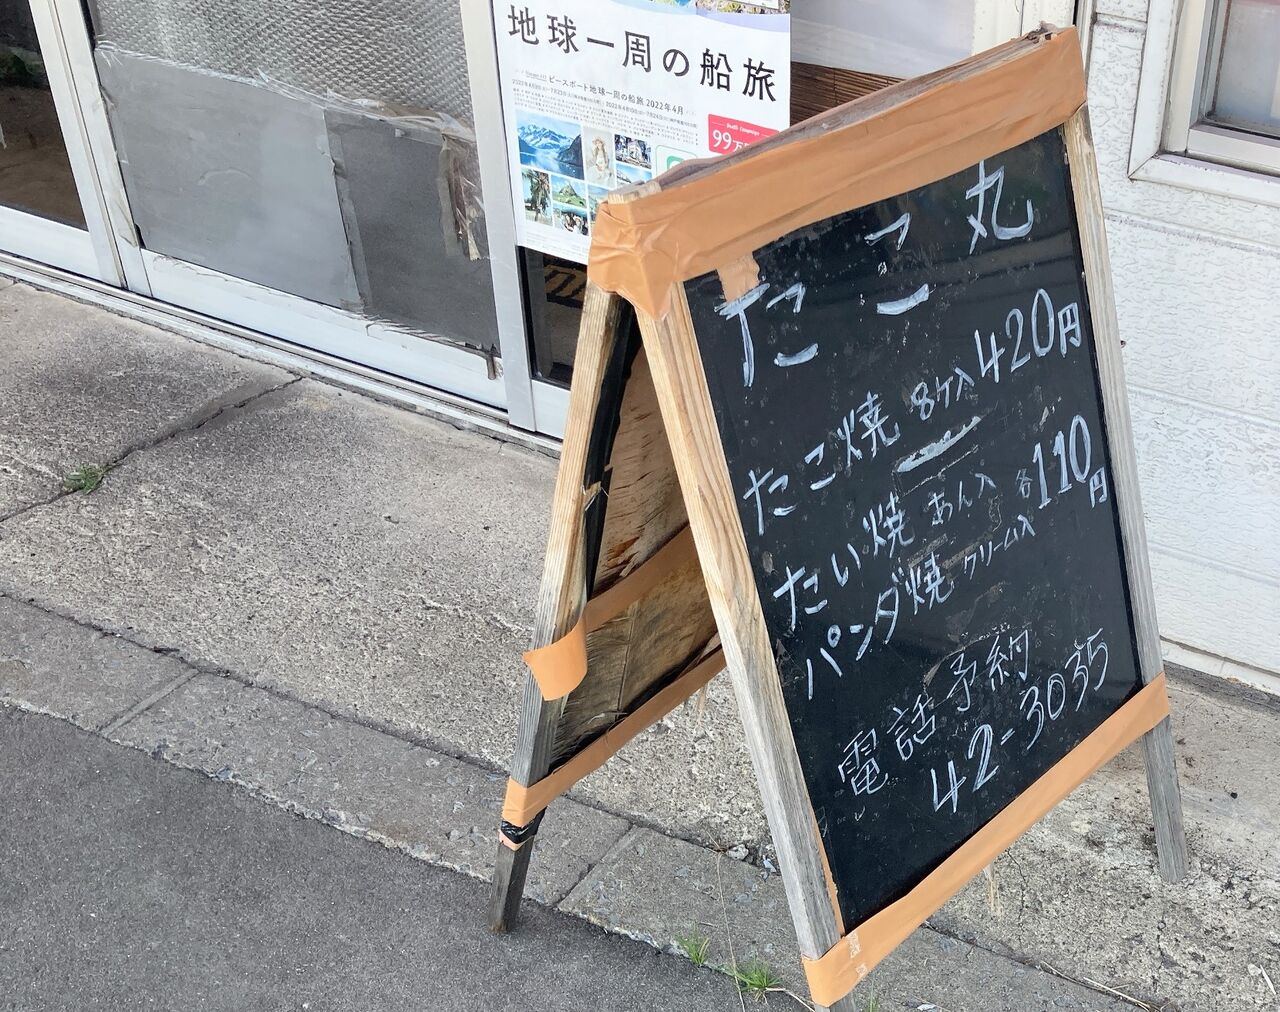 地球一周の船旅
ピースボート地球一周の船旅 2022年4月
99万円
たこ丸
たこ焼 8ケ入 420円
たい焼 あん入 各110円
パンダ焼 クリーム入
電話予約
42-3035